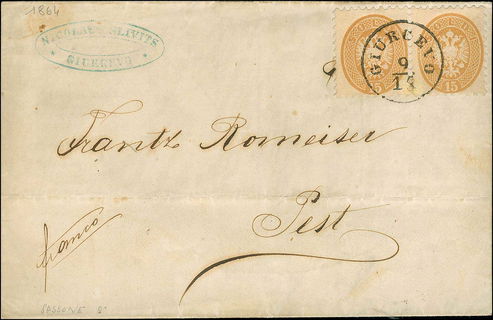 1864
NICOLAUS SLIVITS
GIURGEVO
GIURCEVO
9
15
15
Frantz Romeiser
Pest
franco
SASSONE